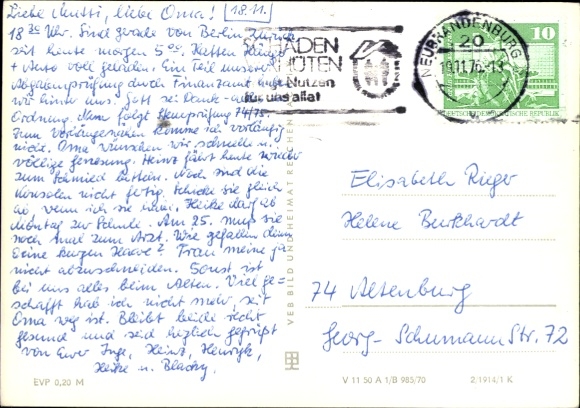 Liebe Mutti, liebe Oma! 18.11.
18 30 Uhr. Sind gerade von Berlin zurück
seit heute morgen 5 00. Hatten
+ Auto voll geladen. Ein Teil unserer
Abgabenprüfung durch Finanzamt
wir hinter uns. Gott sei Dank
Ordnung. Nun folgt 74/75.
Zum komme ich vorläufig
nicht. Oma wünschen wir schnelle u.
völlige Genesung. Heinz fährt heute wieder
zum Schmied betteln. Noch sind die
Konsolen nicht fertig. Schicke sie gleich
ab, wenn ich sie habe. Heike darf ab
Montag zur Schule. Am 25. muß sie
noch mal zum Arzt. Wie gefallen dem
Deine kurzen Haare? Frau meine ja
nicht abzuschneiden. Sonst ist
bei uns alles beim Alten. Viel ge-
schafft hab ich nicht mehr, seit
Oma weg ist. Bleibt beide recht
gesund und seid herzlich gegrüßt
von Euer Inge, Heinz, Henryk,
Heike u. Blacky.
EVP 0,20 M
VEB BILD UND HEIMAT REICHENBACH
HÄDEN
HÜTEN
Nutzen
für uns alle!
NEUBRANDENBURG
20
10
DEUTSCHE DEMOKRATISCHE REPUBLIK
Elisabeth Rieger
Helene Burkhardt
74 Altenburg
Georg-Schumann Str. 72
V 11 50 A 1/B 985/70
2/1914/1 K